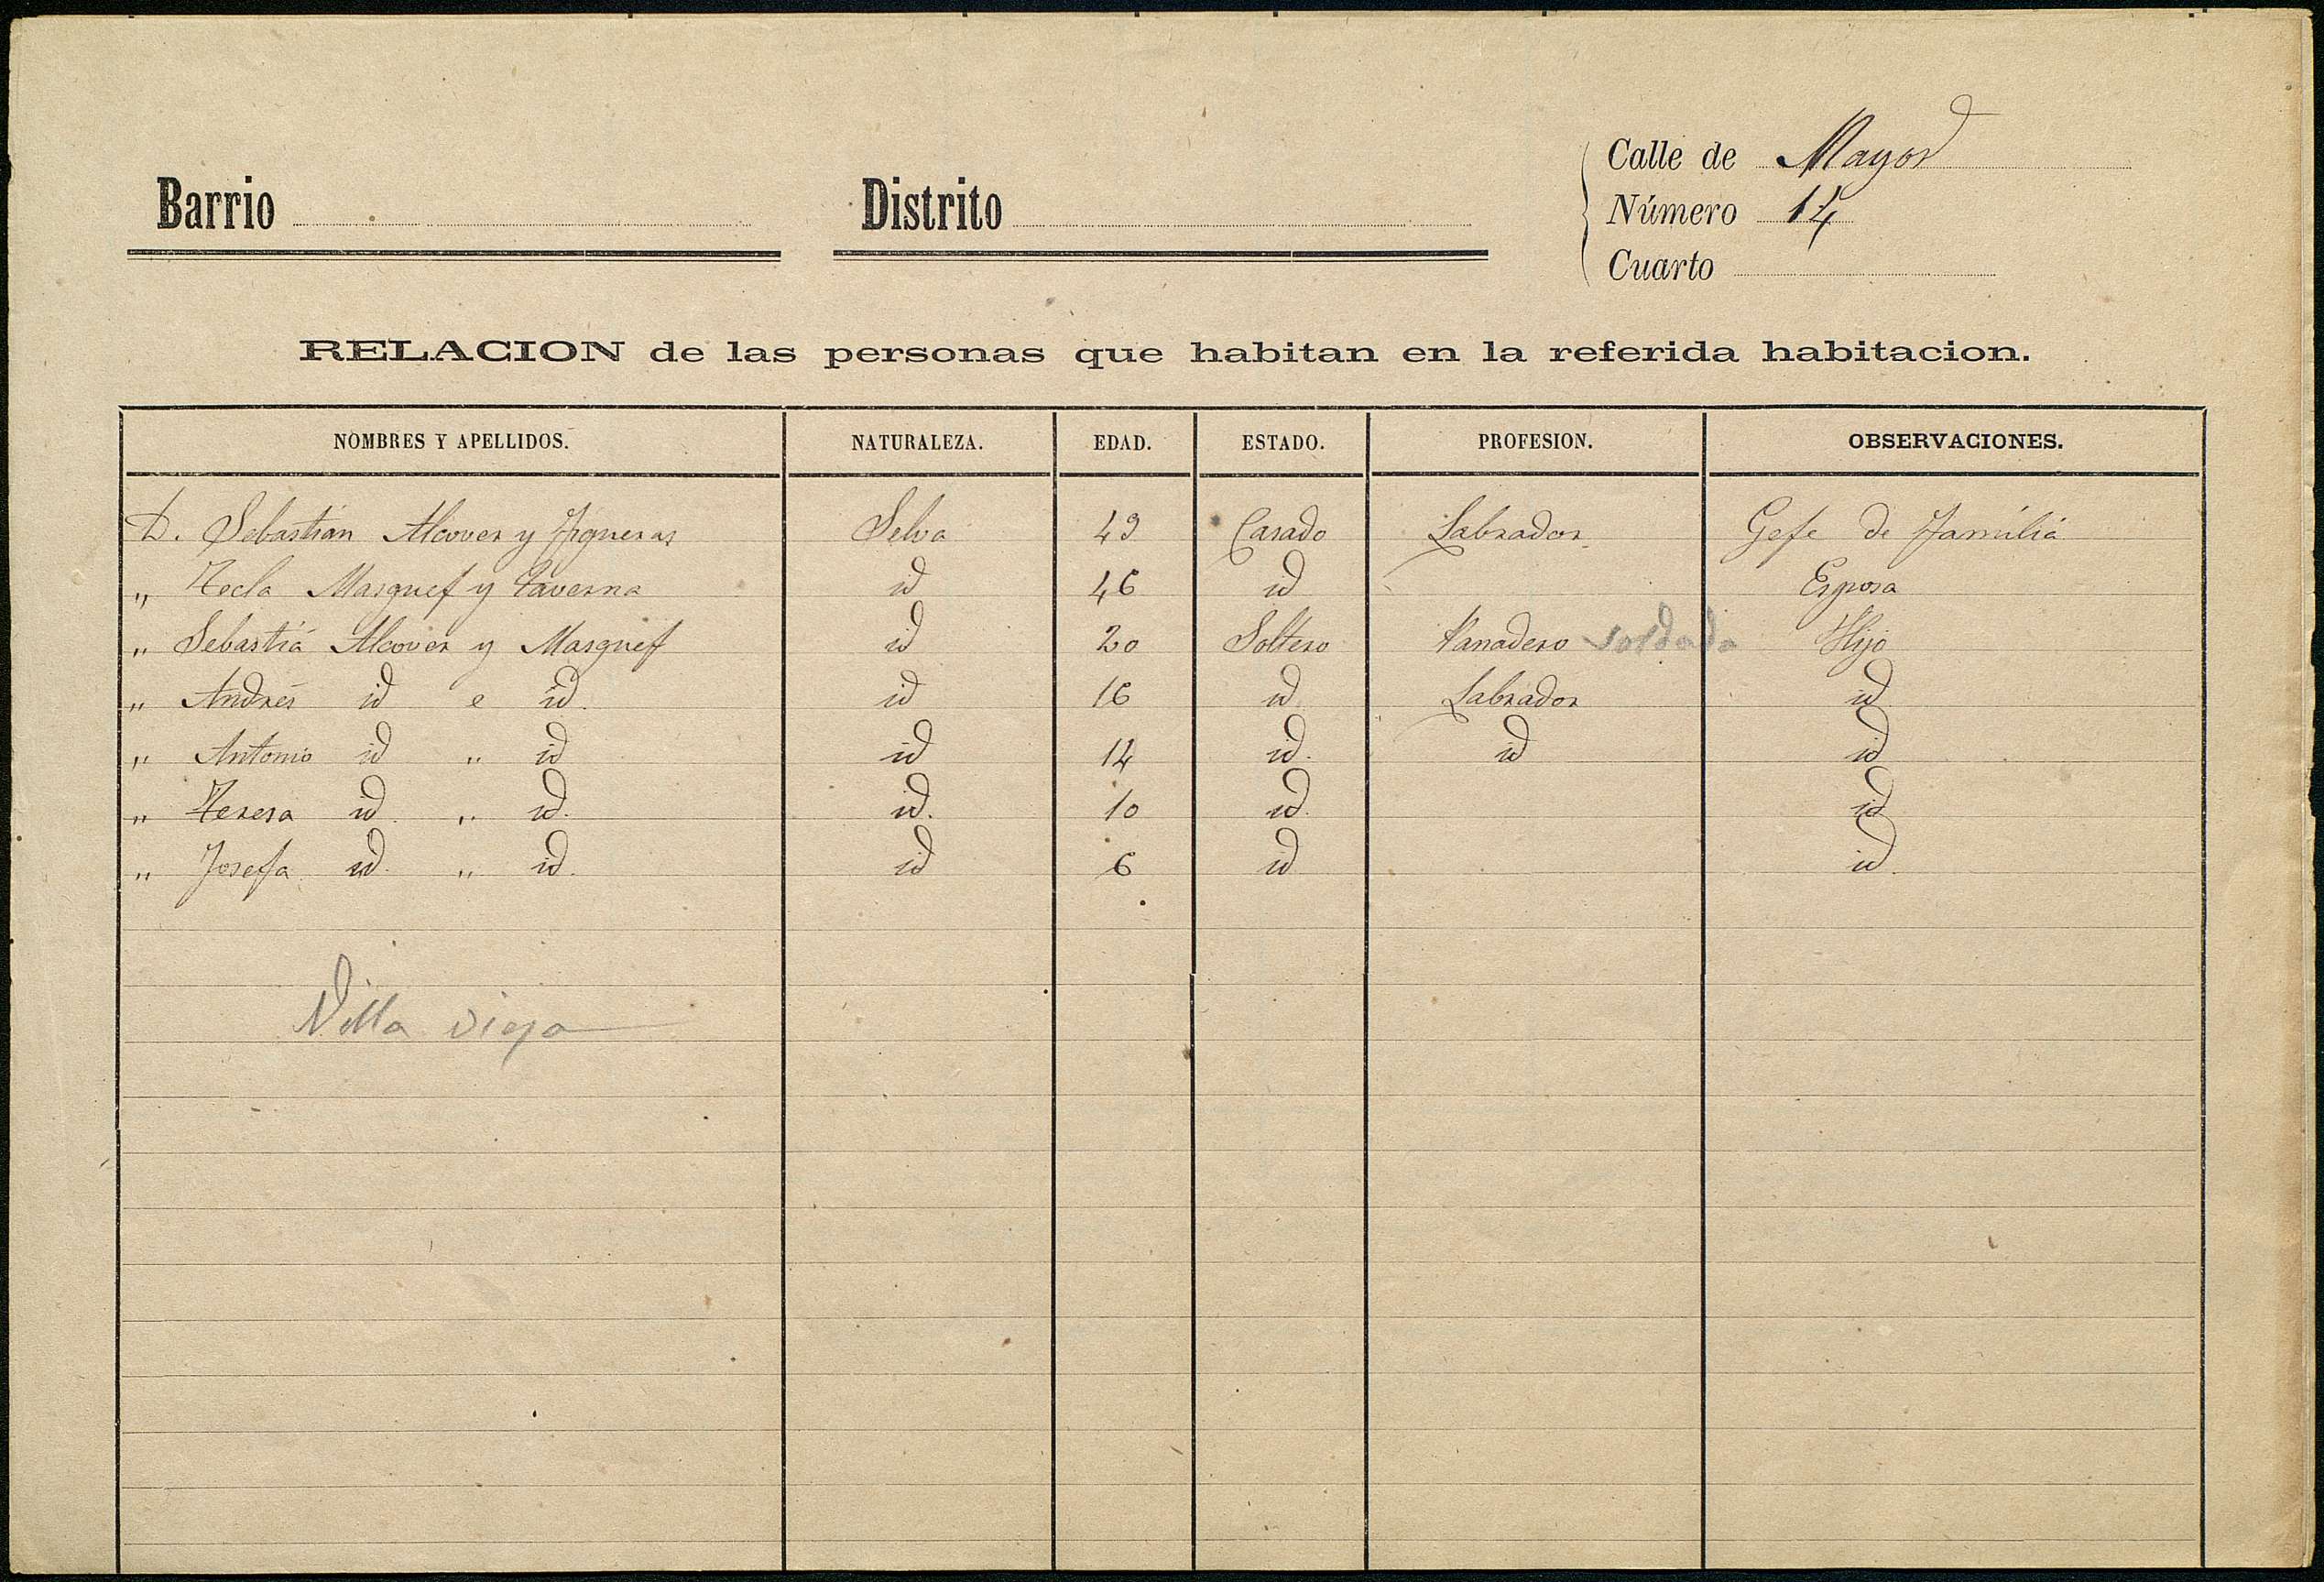 Calle de Mayor
Barrio Distrito Número 14
Cuarto
RELACION de las personas que habitan en la referida habitacion.
NOMBRES Y APELLIDOS. NATURALEZA. EDAD. ESTADO. PROFESION. OBSERVACIONES.
D. Sebastián Alcover y Figueras Selva 49 Casado Labrador Gefe de Família
„ Tecla Masquef y Taverna id 46 id Esposa
„ Sebastiá Alcover y Masquef id 20 Soltero Panadero soldado Hijo
„ Andrés id e id. id 16 id Labrador id
„ Antonio id „ id id 14 id. id id
„ Teresa id. „ id. id. 10 id. id
„ Josefa id. „ id. id 6 id id.
Villa vieja